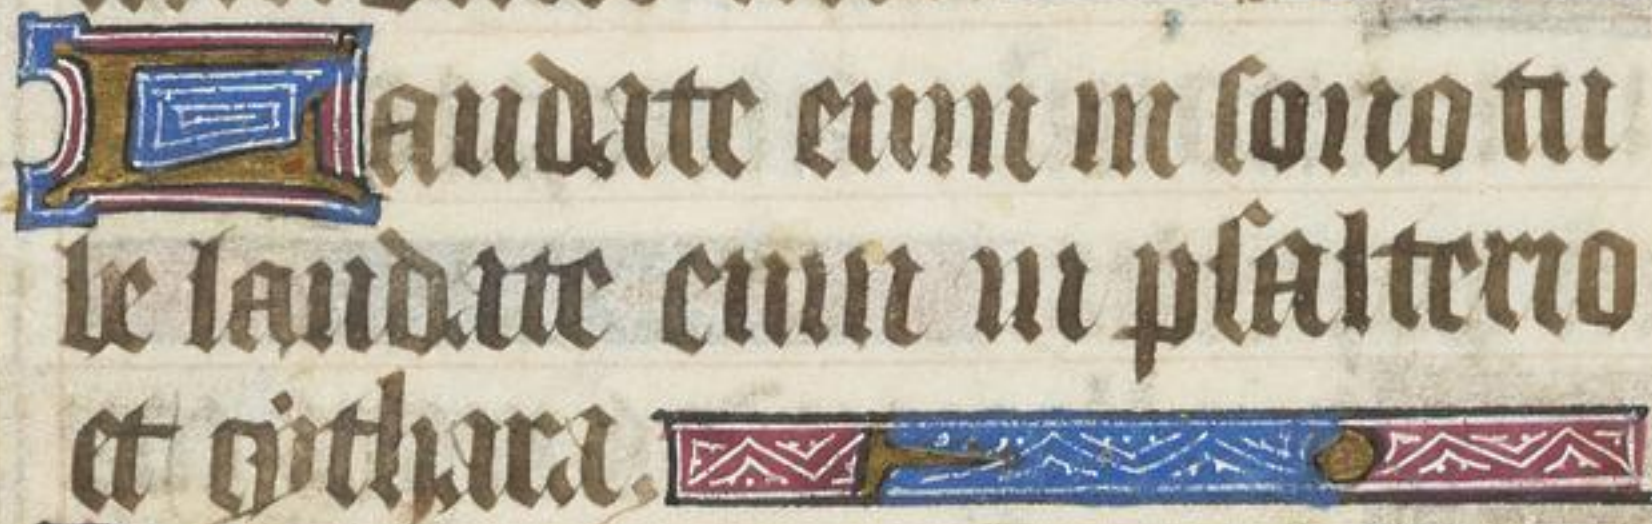 Laudate eum in sono tu
be laudate eum in psalterio
et cythara.